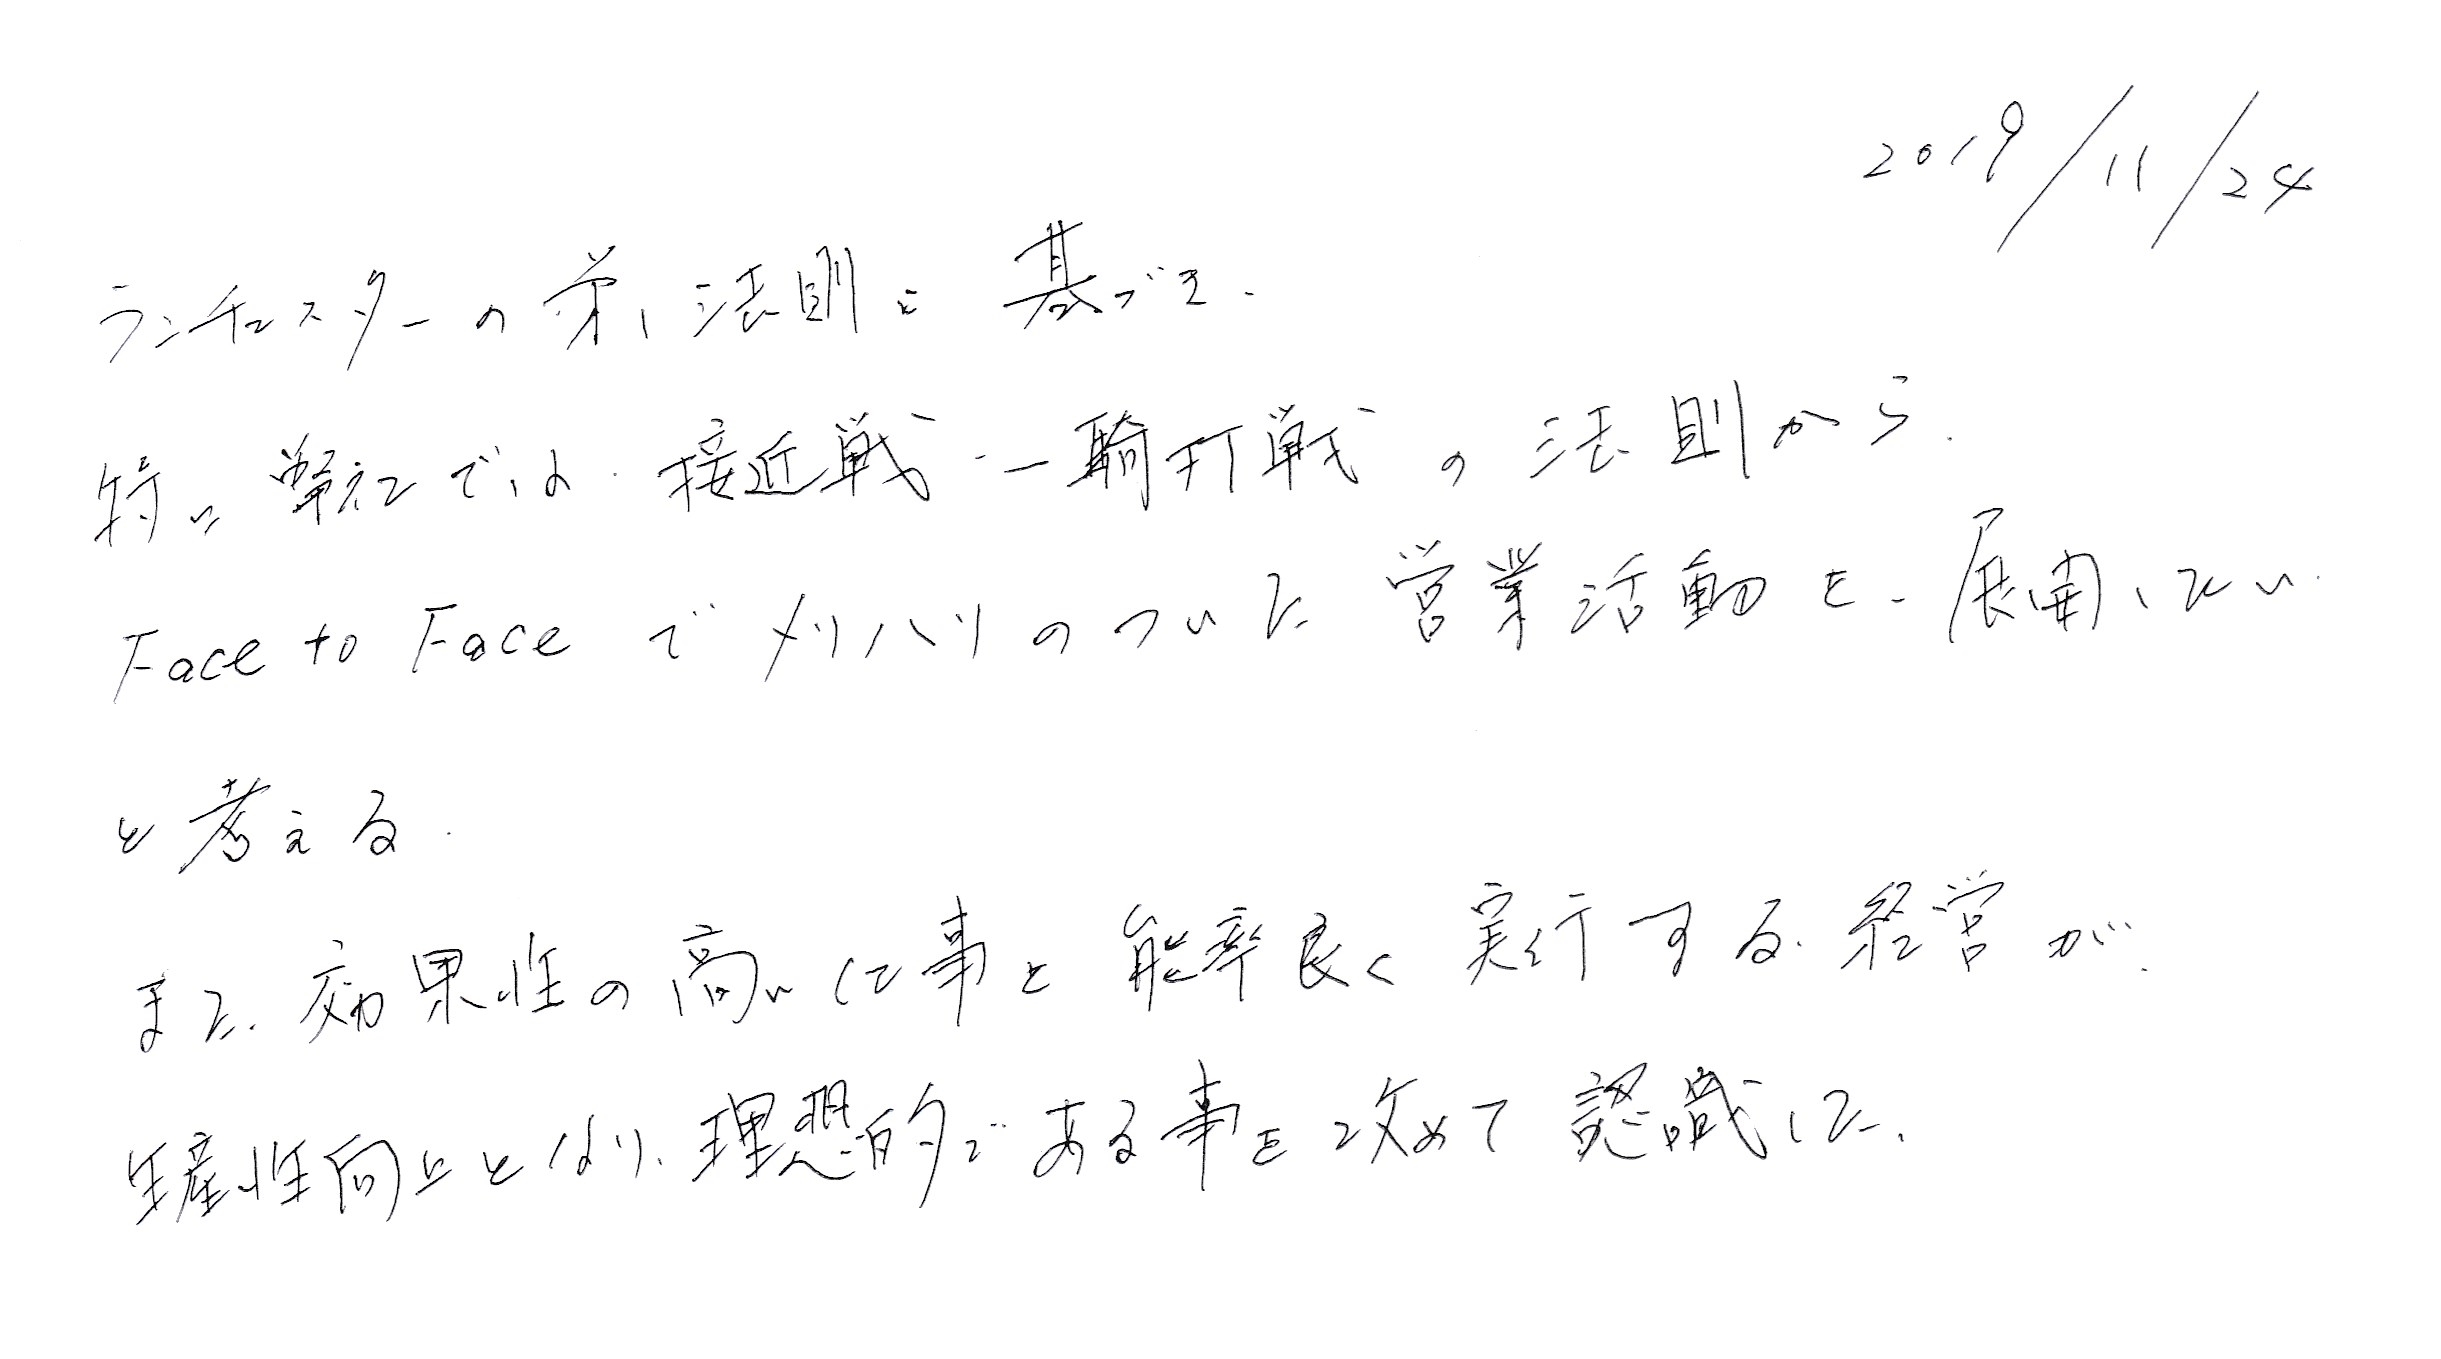 2019/11/24
ランチェスターの第1法則に基づき、
特に弊社では、接近戦・一騎打戦の法則から、
Face to Faceでメリハリのついた営業活動を、展開したい
と考える。
また、効果性の高い仕事を能率良く実行する経営が、
生産性向上となり、理想的である事を改めて認識した。